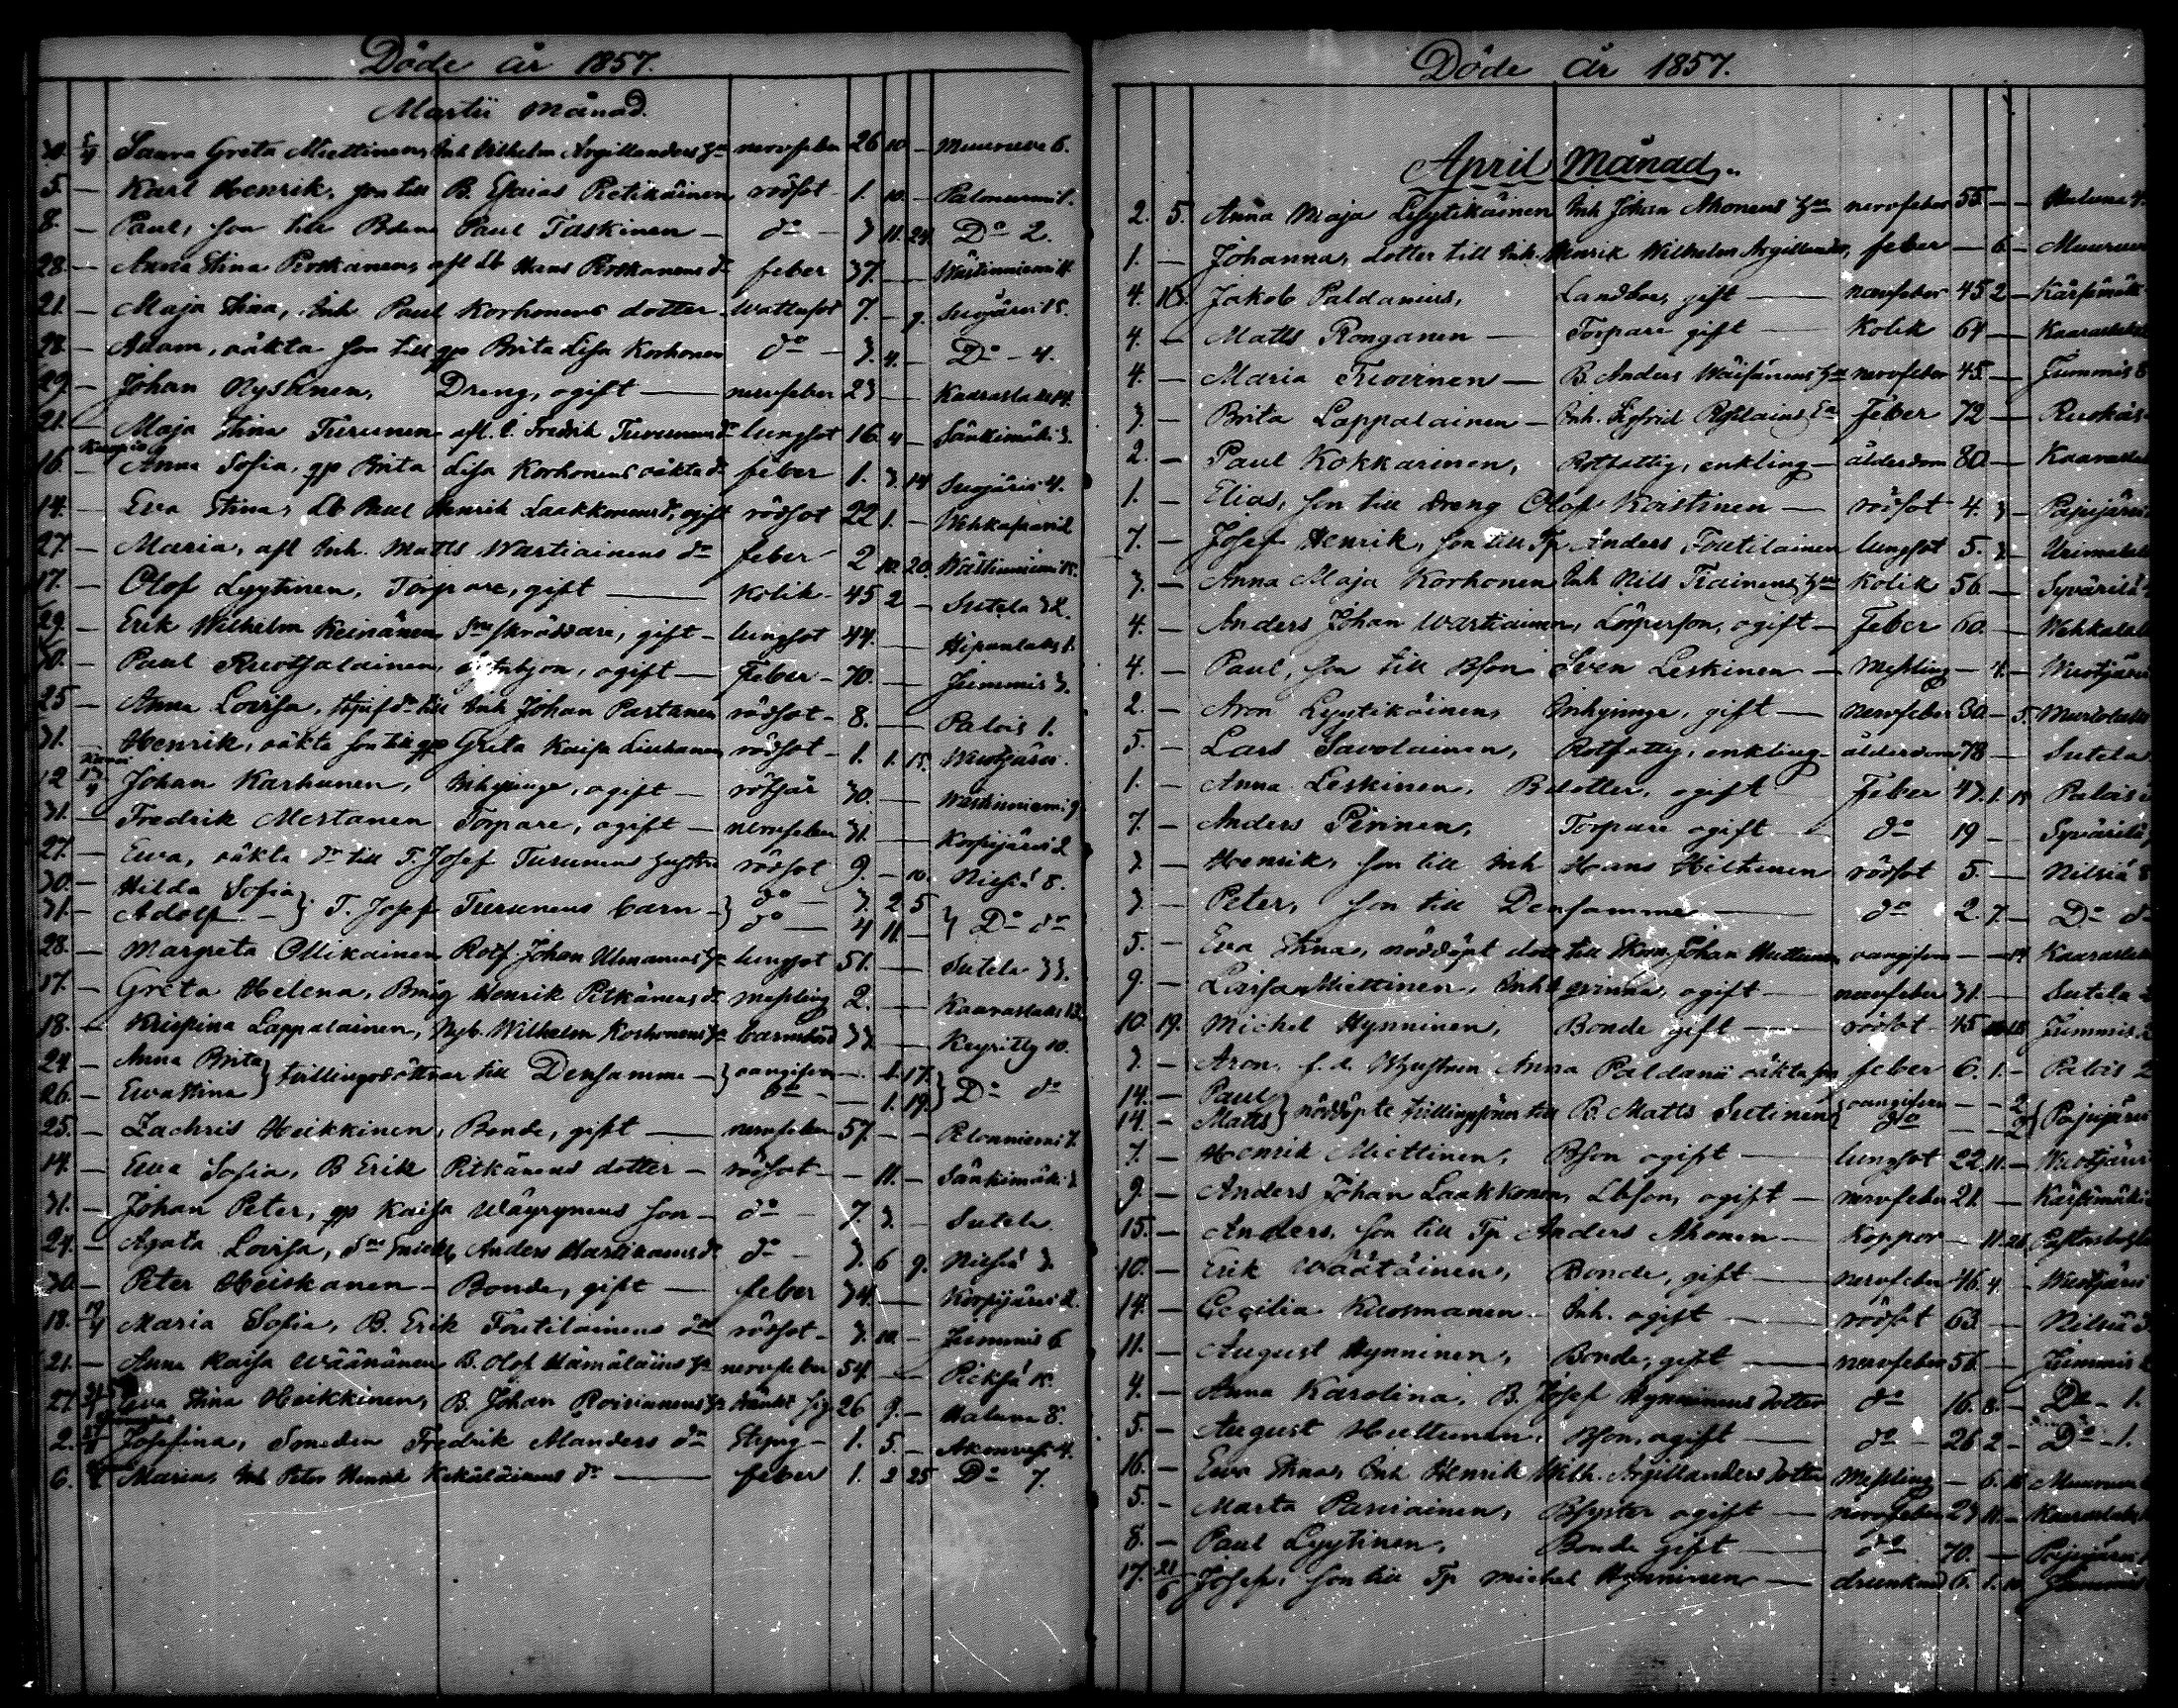 Döde år 1857.
Martii månad.
30. 5/4 Saara Greta Miettinen, Inh. Wilhelm Argillanders hu nervfeber 26 10 — Muuruvesi 6.
5. — Karl Henrik, son till B. Esaias Pietikäinen rödsot 1. 10. — Palonurmi 1.
8. — Paul, son till Bden Paul Taskinen — do — 3 11. 24. Do 2.
28. — Anna Stina Roskanen, afl. Lb Hans Roskanens dr feber 37. — — Västinniemi
21. — Maja Stina, Inh. Paul Korhonens dotter wattusot 7. — 9. Suojärvi 15.
28. — Adam, oäkta son till gp Brita Lisa Korhonen do — 3. 4. — Do — 4.
29. — Johan Rysänen, Dreng, ogift — nervfeber 23 — — Kaaraslaks 14.
21. — Maja Stina Turunen afl. Fredrik Turunens dr lungsot 16 4 — Sänkimäki 3.
16. — Anna Sofia, gp Brita Lisa Korhonens oäkta dr feber 1. 3. 14 Suojärvi 4.
14. — Eva Stina, Lb Paul Henrik Laakkonens dr, ogift rödsot 22 1. —
27. — Maria, afl Inh. Matts Wartiainens dr feber 2 10. 20. Västinniemi 15.
17. — Olof Lyytinen, Torpare, gift — Kolik 45 2 — Sutela 32.
29. — Erik Wilhelm Keinänen Sne skräddare, gift — lungsot 44. — —
30. — Paul Ruotsalainen, ogift — Feber — 70. — — Jummis 3.
25 — Anna Lovisa, till Inh Johan Partanen rödsot — 8. — — Palois 1.
31. — Henrik, oäkta son till gp Greta Kaisa Liuhanen rödsot — 1. 1. 15. Wuotjärvi.
12 13/4 Johan Karhunen, Inhysinge, ogift — 30. — — Västinniemi 9
31. — Fredrik Mertanen Torpare, ogift — nervfeber 31. — — Korpijärvi 2
27. — Ewa, oäkta dr till T. Josef Turunens hustru rödsot 9. — 10. Nilsiä 8.
30. — Hilda Sofia } do 3 2 5
31. — Adolf — } T. Josef Turunens barn — } do 4 11 — } Do do
28. — Margreta Ollikainen Rotf. Johan hu lungsot 51. — — Sutela 33.
17. — Greta Helena, Bmåg Henrik Pitkänens dr messling 2. — — Kaaraslaks 13.
18. — Kristina Lappalainen, Nyb. Wilhelm Korhonens hu barnsbörd 33. — — Keyritty 10.
24. — Anna Brita }
26. — Ewa Stina } tvillingsdöttrar till Densamma — } oangifven — 1. 17. } Do do
do — — 1. 19.
25. — Zachris Heikkinen, Bonde, gift — nervfeber 57. — — Pelonniemi 7.
14. — Ewa Sofia, B Erik Pitkänens dotter — rödsot — — 11. — Sänkimäki
31. — Johan Peter, gp Kaisa Wäyrynens son — do — 7. 3. — Sutela
24. — Agata Lovisa, Anders Hartikainens dr do — 3. 6 9. Nilsiä 3.
30. — Peter Heiskanen — Bonde, gift — feber 34. — — Korpijärvi 2.
18. 19/4 Maria Sofia, B. Erik Toutilainens dr rödsot — 3. 10. — Jummis 6
21. — Anna Kaisa Wäänänen B. Olof Hämäläins hu nervfeber 54. — — Pieksä
27. Eva Stina Heikkinen, B. Johan Roivainens hu 26 9. — Haluna 8.
2. Josefina, Smeden Fredrik Alanders dr 1. 5. — Akonvesi 4.
6. Maria, Inh Peter Henrik Kekäläinens dr — feber 1. 2 25 Do 7.
Döde år 1857.
April Månad.
2. 5. Anna Maja Lyytikäinen Inh Johan Ahonens hu nervfeber 55. — — Haluna 4.
1. — Johanna, dotter till Inh. Henrik Wilhelm Argillander, feber — 6 —
4. Jakob Paldanius, Landboe, gift — nervfeber 45 2 —
4. — Matts Ronganen — Torpare gift — Kolik 64 —
4. — Maria Tuovinen — B. Anders Wäisänens hu nervfeber 45. — Jummis 8
3. — Brita Lappalainen — feber 72 —
2. — Paul Kokkarinen, Rotfattig, enkling — ålderdom 80. —
1. — Elias, son till dreng Olof Koistinen — rödsot 4. 3 —
7. — Josef Henrik, son till Tp Anders Toutilainen lungsot 5. 3 —
3. — Anna Maja Korhonen Inh Nils Tiainens hu Kolik 56 — Syvärilä
4. — Anders Johan Wartiainen, Lösperson, ogift — Feber 60. —
4. — Paul, son till Bson Sven Leskinen — Messling — 4. —
2. — Aron Lyytikäinen, Inhysinge, gift — nervfeber 30. — 5.
5. — Lars Savolainen, Rotfattig, enkling — ålderdom 78 — Sutela
1. — Anna Leskinen, Bdotter, ogift Feber 43. 1. 15 Palois
7. — Anders Pirinen, Torpare ogift — do 19 — Syvärilä
3. — Henrik, son till Inh Hans Hiltunen rödsot 5. — Nilsiä 8
3. — Peter, son till Densamme — do 2. 7. — Do do
5. — Eva Stina, nöddöpt dott. till Johan Huttunen oangifven — — 14
9. — Lovisa Miettinen, Inh. qvinna, ogift — nervfeber 31. — Sutela
10. 19. Michel Hynninen, Bonde gift — rödsot 45 Jummis
3. — Aron, f. d. Anna Paldanii oäkta son feber 6. 1. — Palois 2
14. — Paul }
14. — Matts } nöddöpte tvillingsöner till B. Matts Sutinen } oangifven — — 2 } Pajujärvi
do — — 2
7. — Henrik Miettinen, Bson ogift — lungsot 22 11. —
9. — Anders Johan Laakkonen, Lbson, ogift — nervfeber 21. —
15. — Anders, son till Tp Anders Ahonen — Koppor — 11. 21.
10. — Erik Wäätäinen, Bonde, gift — nervfeber 46. 4 —
14. — Cecilia Kuosmanen — Inh. ogift — rödsot 63 —
11. — August Hynninen, Bonde, gift — nervfeber 56. — Jummis
4. — Anna Karolina, B. Josef Hynninens dotter do 16. 8. — Do — 1.
5. — August Huttunen, Bson, ogift — do — 26. 2 — Do — 1.
16. — Ewa Stina, Inh Henrik Wilh. Argillanders dotter Messling — 6.
5. — Marta Parviainen, Bsyster ogift — nervfeber 23 11. —
8. — Paul Lyytinen, Bonde gift — do 70. — Pajujärvi
17. 21/6 Josef, son till Tp Michel Hynninen — drunknad 6. 1. 10. Jummis